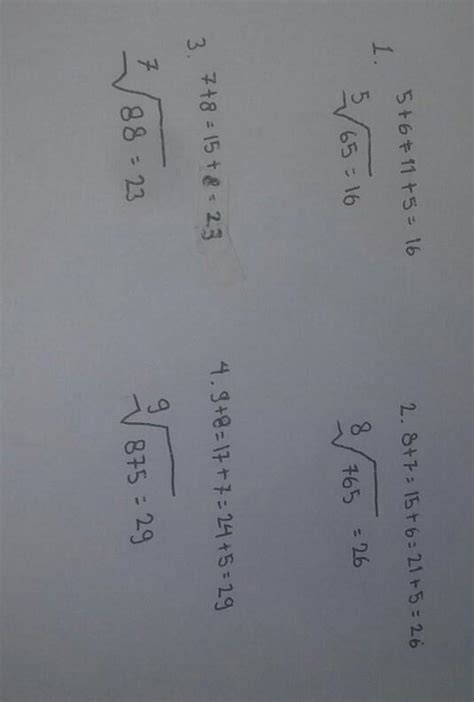 1. 5+6=11+5=16
5√65=16
2. 8+7=15+6=21+5=26
8√765=26
3. 7+8=15+8=23
7√88=23
4. 9+8=17+7=24+5=29
9√875=29